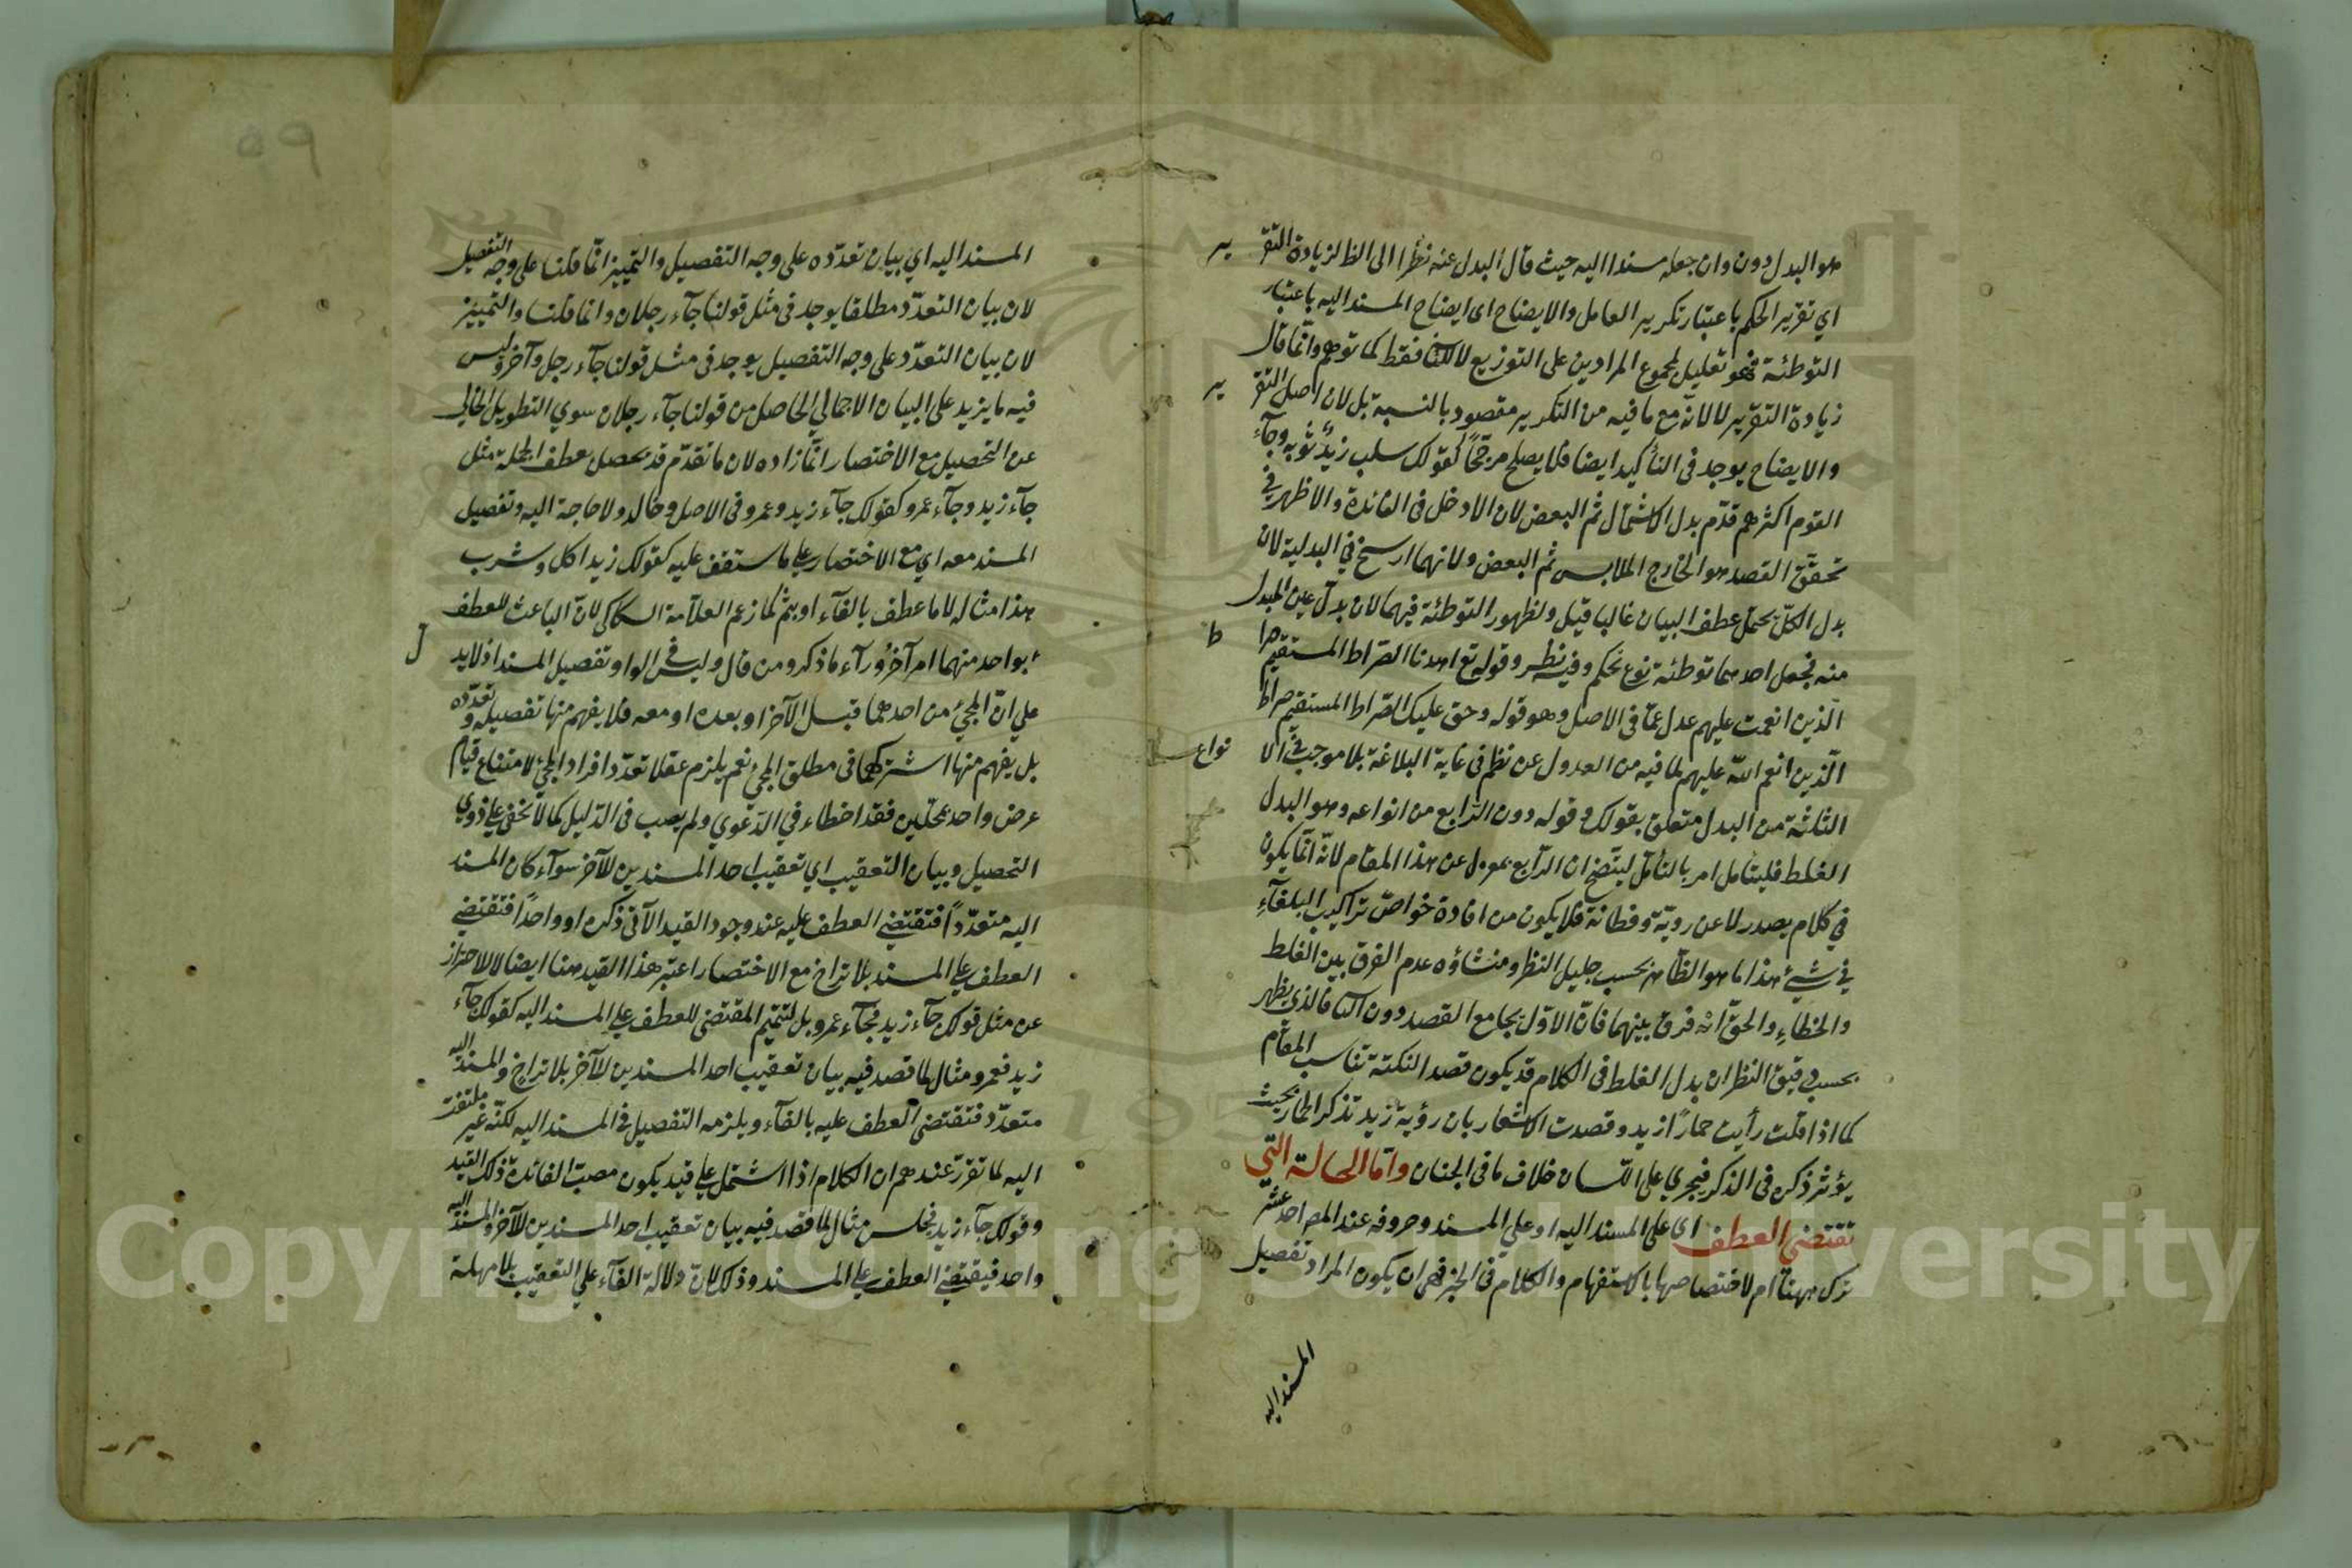 هو البدل دون وان جعله مسندا اليه حيث قال البدل عنه نظرا الى الظ لزيادة التقرير
اي تقرير الحكم باعتبار تكرير العامل والايضاح اى ايضاح المسند اليه باعتبار
التوطئة فهو تعليل لمجموع المرادين على التوزيع لا للثا فقط كما توهم وانما قال
زيادة التقرير لا لانه مع ما فيه من التكرير مقصود بالنسبة بل لان اصل التقرير
والايضاح يوجد فى التأكيد ايضا فلا يصلح مرجحا كقولك سلب زيد ثوبه وجآء
القوم اكثرهم قدم بدل الاشتمال ثم البعض لان الادخل فى الفائدة والاظهر في
تحقق القصد هو الخارج الملابس ثم البعض ولانهما ارسخ في البدلية لان
بدل الكل يحتمل عطف البيان غالبا قيل ولظهور التوطئة فيهما لان بدل عين المبدل
منه فجعل احدهما توطئة نوع تحكم وفيه نظر وقوله تع اهدنا الصراط المستقيم صراط
الذين انعمت عليهم عدل عما فى الاصل وهو قوله وحق عليك الصراط المستقيم صراط
الذين انعم الله عليهم لما فيه من العدول عن نظم فى غاية البلاغة بلا موجب في الانواع
الثلثة من البدل متعلق بقولك وقوله دون الرابع من انواعه وهو البدل
الغلط فليتأمل امر بالتأمل ليتضح ان الرابع بمعزل عن هذا المقام لانه انما يكون
في كلام يصدر لا عن روية وفطانة فلا يكون من افادة خواص تراكيب البلغآء
في شيء هذا ما هو الظاهر بحسب جليل النظر ومنشاؤه عدم الفرق بين الغلط
والخطاء والحق انه فرق بينهما فان الاول يجامع القصد دون الثا فالذي يظهر
بحسب دقيق النظر ان بدل الغلط فى الكلام قد يكون قصد النكتة تناسب المقام
كما اذا قلت رأيت حمارا زيد وقصدت الاشعار بان رؤية زيد تذكر الحمار بحيث
يؤثر ذكره فى الذكر فيجري على اللسان خلاف ما فى الجنان واما الحالة التي
تقتضي العطف اى على المسند اليه او علي المسند وحروفه عند المص احد عشر
ترك ههنا ام لاختصاصها بالاستفهام والكلام فى الخبر فهى ان يكون المراد تفصيل
المسند اليه
المسند اليه اي بيان تعدده على وجه التفصيل والتمييز انما قلنا على وجه التفصيل
لان بيان التعدد مطلقا يوجد فى مثل قولنا جآء رجلان وانما قلنا والتمييز
لان بيان التعدد على وجه التفصيل يوجد فى مثل قولنا جآء رجل وآخر وليس
فيه ما يزيد على البيان الاجمالي الحاصل من قولنا جآء رجلان سوي التطويل الخالي
عن التحصيل مع الاختصار انما زاده لان ما تقدم قد يحصل بعطف الجملة مثل
جآء زيد وجآء عمرو كقولك جآء زيد وعمرو فى الاصل وخالد ولا حاجة اليه وتفصيل
المسند معه اي مع الاختصار على ما ستقف عليه كقولك زيد اكل وشرب
هذا مثاله لا ما عطف بالفآء او بثم كما زعم العلامة السكاكى لان الباعث للعطف
بواحد منهما امر آخر ورآء ما ذكر ومن قال وليس في الواو تفصيل المسند اذ لا يدل
علي ان المجئ من احدهما قبل الآخر او بعده او معه فلا يفهم منها تفصيله وتعدده
بل يفهم منها اشتراكهما فى مطلق المجئ نعم يلزم عقلا تعدد افراد المجئ لامتناع قيام
عرض واحد بمحلين فقد اخطاء في الدعوي ولم يصب فى الدليل كما لا يخفى على ذوي
التحصيل وبيان التعقيب اي تعقيب احد المسندين للآخر سوآء كان المسند
اليه متعددا فتقتضي العطف عليه عند وجود القيد الآتى ذكره او واحدا فتقتضي
العطف على المسند بلا تراخ مع الاختصار اعتبر هذا القيد ههنا ايضا لا للاحتراز
عن مثل قولك جآء زيد فجآء عمرو بل لتتميم المقتضى للعطف على المسند اليه كقولك جآء
زيد فعمرو مثال لما قصد فيه بيان تعقيب احد المسندين للآخر بلا تراخ والمسند اليه
متعدد فتقتضى العطف عليه بالفآء ويلزمه التفصيل في المسند اليه لكنه غير ملتفت
اليه لما تقرر عندهم ان الكلام اذا اشتمل على قيد يكون مصب الفائدة ذلك القيد
وقولك جآء زيد فجلس مثال لما قصد فيه بيان تعقيب احد المسندين للآخر والمسند اليه
واحد فيقتضي العطف على المسند وذلك لان دلالة الفآء علي التعقيب بلا مهلة
٥٩
Copyright © King Saud University